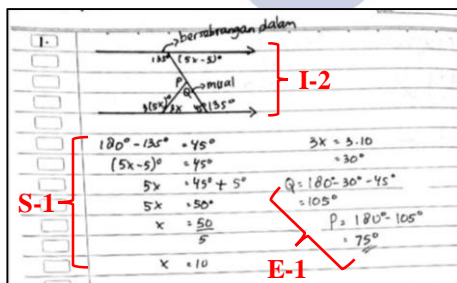 1-
bersebrangan dalam
135° (5x-5)°
P
Q
3(5x)° 3x 135°
I-2
180° - 135° = 45°
(5x-5)° = 45°
5x = 45° + 5°
5x = 50°
x = 50/5
x = 10
S-1
3x = 3.10
= 30°
Q = 180° - 30° - 45°
= 105°
P = 180° - 105°
= 75°
E-1